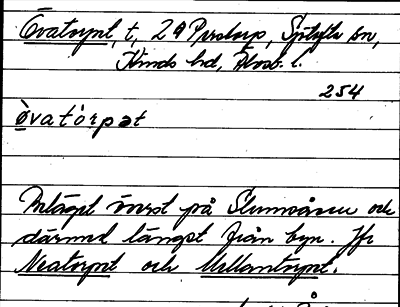 Övatorpet, t, 29 Perstorp, Sptylts sn,
Kinds hd, Älvsb. l.
254
òvatórpət
Beläget överst på Slumvåsen och
därmed längst från byn. Jfr
Neatorpet och Mellantorpet.